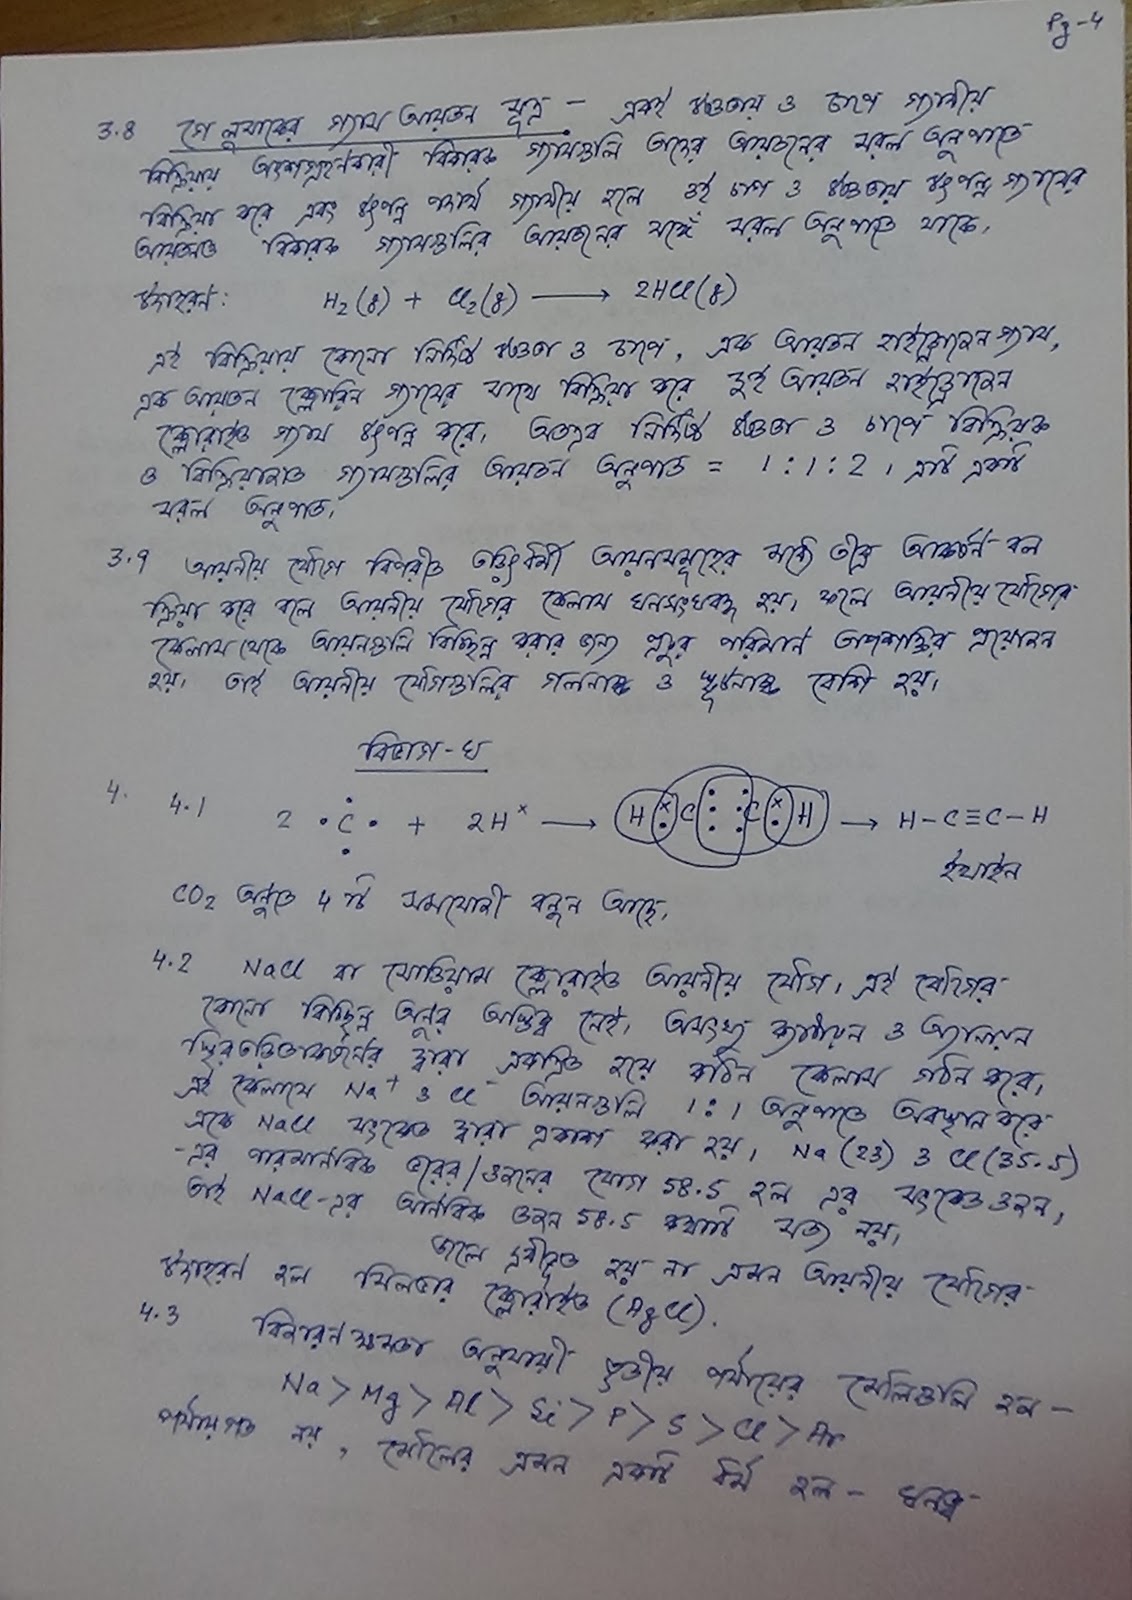 Pg-4
3.8 গে লুসাকের গ্যাস আয়তন সূত্র - একই উষ্ণতায় ও চাপে গ্যাসীয়
বিক্রিয়ায় অংশগ্রহনকারী বিকারক গ্যাসগুলি তাদের আয়তনের সরল অনুপাতে
বিক্রিয়া করে এবং উৎপন্ন পদার্থ গ্যাসীয় হলে ঐ চাপ ও উষ্ণতায় উৎপন্ন গ্যাসের
আয়তনও বিকারক গ্যাসগুলির আয়তনের সঙ্গে সরল অনুপাতে থাকে।
উদাহরণ: H2(g) + Cl2(g) ⟶ 2HCl(g)
এই বিক্রিয়ায় কোনো নির্দিষ্ট উষ্ণতা ও চাপে, এক আয়তন হাইড্রোজেন গ্যাস,
এক আয়তন ক্লোরিন গ্যাসের সাথে বিক্রিয়া করে দুই আয়তন হাইড্রোজেন
ক্লোরাইড গ্যাস উৎপন্ন করে। অতএব নির্দিষ্ট উষ্ণতা ও চাপে বিক্রিয়ক
ও বিক্রিয়াজাত গ্যাসগুলির আয়তন অনুপাত = 1 : 1 : 2 । এটি একটি
সরল অনুপাত।
3.9 আয়নীয় যৌগে বিপরীত তড়িৎধর্মী আয়নসমূহের মধ্যে তীব্র আকর্ষন বল
ক্রিয়া করে বলে আয়নীয় যৌগের কেলাস ঘনসংঘবদ্ধ হয়। ফলে আয়নীয় যৌগের
কেলাস থেকে আয়নগুলি বিচ্ছিন্ন করার জন্য প্রচুর পরিমান তাপশক্তির প্রয়োজন
হয়। তাই আয়নীয় যৌগগুলির গলনাঙ্ক ও স্ফুটনাঙ্ক বেশি হয়।
বিভাগ-ঘ
4. 4.1 2 C + 2H× ⟶ H C C H ⟶ H-C≡C-H
ইথাইন
CO2 অনুতে 4 টি সমযোজী বন্ধন আছে।
4.2 NaCl বা সোডিয়াম ক্লোরাইড আয়নীয় যৌগ। এই যৌগের
কোনো বিচ্ছিন্ন অনুর অস্তিত্ব নেই। অসংখ্য ক্যাটায়ন ও অ্যানায়ন
স্থিরতড়িতাকর্ষনের দ্বারা একত্রিত হয়ে কঠিন কেলাস গঠন করে।
এই কেলাসে Na+ ও Cl- আয়নগুলি 1:1 অনুপাতে অবস্থান করে
একে NaCl সংকেত দ্বারা প্রকাশ করা হয়। Na (23) ও Cl (35.5)
-এর পারমানবিক ভরের/ওজনের যোগ 58.5 হল এর সংকেত ওজন।
তাই NaCl-এর আনবিক ওজন 58.5 কথাটি সত্য নয়।
জলে দ্রবীভূত হয় না এমন আয়নীয় যৌগের
উদাহরণ হল সিলভার ক্লোরাইড (AgCl).
4.3 বিজারন ক্ষমতা অনুযায়ী তৃতীয় পর্যায়ের মৌলগুলি হল -
Na > Mg > Al > Si > P > S > Cl > Ar
পর্যায়গত নয়, মৌলের এমন একটি ধর্ম হল -